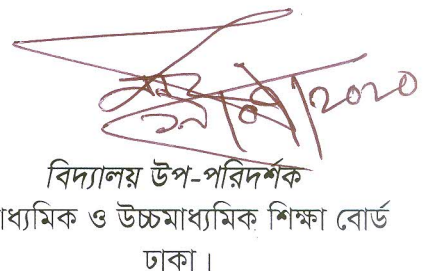 ২০২০
বিদ্যালয় উপ-পরিদর্শক
াধ্যমিক ও উচ্চমাধ্যমিক শিক্ষা বোর্ড
ঢাকা।